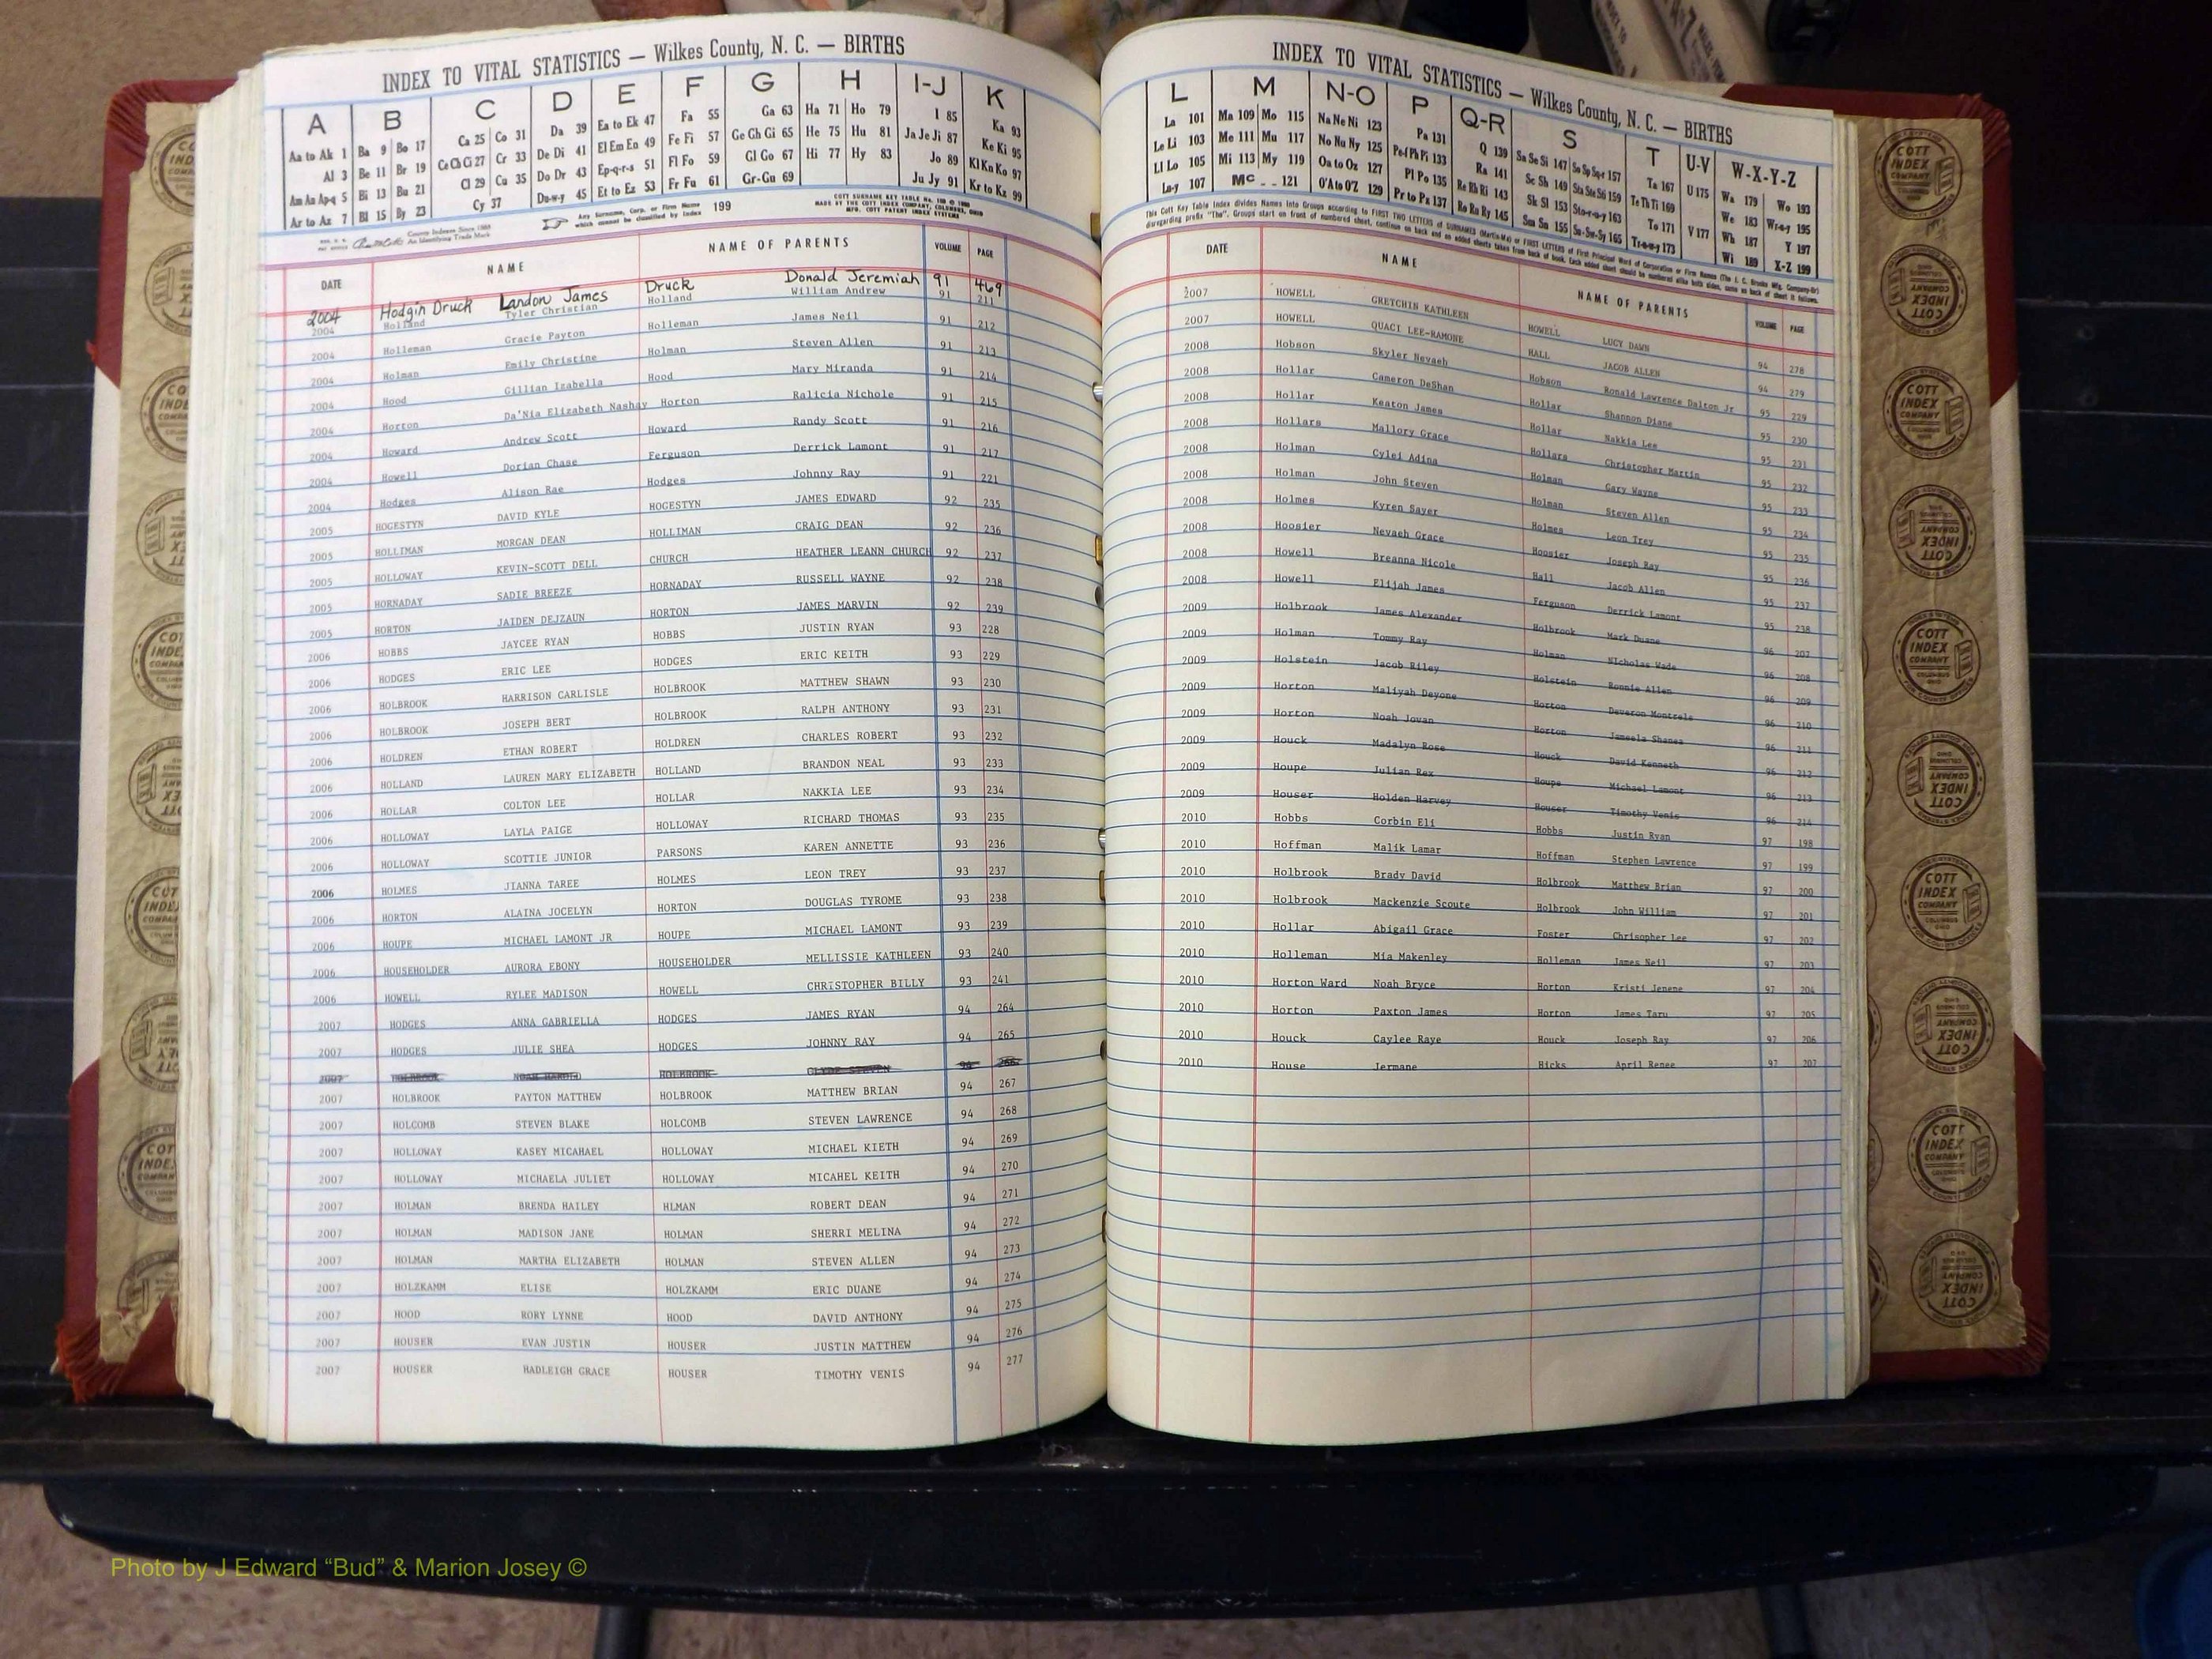 INDEX TO VITAL STATISTICS — Wilkes County, N. C. — BIRTHS
A B C D E F G H I-J K
Aa to Ak 1 Ba 9 Bo 17 Ca 25 Co 31 Da 39 Ea to Ek 47 Fa 55 Ga 63 Ha 71 Ho 79 I 85 Ka 93
Al 3 Be 11 Br 19 Ce Ch Ci 27 Cr 33 De Di 41 El Em En 49 Fe Fi 57 Ge Gh Gi 65 He 75 Hu 81 Ja Je Ji 87 Ke Ki 95
Am An Ap-q 5 Bi 13 Bu 21 Cl 29 Cu 35 Do Dr 43 Ep-q-r-s 51 Fl Fo 59 Gl Go 67 Hi 77 Hy 83 Jo 89 Kl Kn Ko 97
Ar to Az 7 Bl 15 By 23 Cy 37 Du-w-y 45 Et to Ez 53 Fr Fu 61 Gr-Gu 69 Ju Jy 91 Kr to Kz 99
County Indexes Since 1888
An Identifying Trade Mark
Any Surname, Corp. or Firm Name
which cannot be classified by Index 199
MADE BY THE COTT INDEX COMPANY, COLUMBUS, OHIO
DATE NAME NAME OF PARENTS VOLUME PAGE
2004 Hodgin Druck Landon James Druck Donald Jeremiah 91 469
2004 Holland Tyler Christian Holland William Andrew 91 211
2004 Holleman Gracie Payton Holleman James Neil 91 212
2004 Holman Emily Christine Holman Steven Allen 91 213
2004 Hood Gillian Izabella Hood Mary Miranda 91 214
2004 Horton Da'Nia Elizabeth Nashay Horton Ralicia Nichole 91 215
2004 Howard Andrew Scott Howard Randy Scott 91 216
2004 Howell Dorian Chase Ferguson Derrick Lamont 91 217
2004 Hodges Alison Rae Hodges Johnny Ray 91 221
2005 HOGESTYN DAVID KYLE HOGESTYN JAMES EDWARD 92 235
2005 HOLLIMAN MORGAN DEAN HOLLIMAN CRAIG DEAN 92 236
2005 HOLLOWAY KEVIN-SCOTT DELL CHURCH HEATHER LEANN CHURCH 92 237
2005 HORNADAY SADIE BREEZE HORNADAY RUSSELL WAYNE 92 238
2005 HORTON JAIDEN DEJZAUN HORTON JAMES MARVIN 92 239
2006 HOBBS JAYCEE RYAN HOBBS JUSTIN RYAN 93 228
2006 HODGES ERIC LEE HODGES ERIC KEITH 93 229
2006 HOLBROOK HARRISON CARLISLE HOLBROOK MATTHEW SHAWN 93 230
2006 HOLBROOK JOSEPH BERT HOLBROOK RALPH ANTHONY 93 231
2006 HOLDREN ETHAN ROBERT HOLDREN CHARLES ROBERT 93 232
2006 HOLLAND LAUREN MARY ELIZABETH HOLLAND BRANDON NEAL 93 233
2006 HOLLAR COLTON LEE HOLLAR NAKKIA LEE 93 234
2006 HOLLOWAY LAYLA PAIGE HOLLOWAY RICHARD THOMAS 93 235
2006 HOLLOWAY SCOTTIE JUNIOR PARSONS KAREN ANNETTE 93 236
2006 HOLMES JIANNA TAREE HOLMES LEON TREY 93 237
2006 HORTON ALAINA JOCELYN HORTON DOUGLAS TYROME 93 238
2006 HOUPE MICHAEL LAMONT JR HOUPE MICHAEL LAMONT 93 239
2006 HOUSEHOLDER AURORA EBONY HOUSEHOLDER MELLISSIE KATHLEEN 93 240
2006 HOWELL RYLEE MADISON HOWELL CHRISTOPHER BILLY 93 241
2007 HODGES ANNA GABRIELLA HODGES JAMES RYAN 94 264
2007 HODGES JULIE SHEA HODGES JOHNNY RAY 94 265
2007 HOLBROOK HOLBROOK 94 266
2007 HOLBROOK PAYTON MATTHEW HOLBROOK MATTHEW BRIAN 94 267
2007 HOLCOMB STEVEN BLAKE HOLCOMB STEVEN LAWRENCE 94 268
2007 HOLLOWAY KASEY MICAHAEL HOLLOWAY MICHAEL KIETH 94 269
2007 HOLLOWAY MICHAELA JULIET HOLLOWAY MICAHEL KEITH 94 270
2007 HOLMAN BRENDA HAILEY HLMAN ROBERT DEAN 94 271
2007 HOLMAN MADISON JANE HOLMAN SHERRI MELINA 94 272
2007 HOLMAN MARTHA ELIZABETH HOLMAN STEVEN ALLEN 94 273
2007 HOLZKAMM ELISE HOLZKAMM ERIC DUANE 94 274
2007 HOOD RORY LYNNE HOOD DAVID ANTHONY 94 275
2007 HOUSER EVAN JUSTIN HOUSER JUSTIN MATTHEW 94 276
2007 HOUSER HADLEIGH GRACE HOUSER TIMOTHY VENIS 94 277
INDEX TO VITAL STATISTICS — Wilkes County, N. C. — BIRTHS
L M N-O P Q-R S T U-V W-X-Y-Z
La 101 Ma 109 Mo 115 Na Ne Ni 123 Pa 131 Q 139 Sa Se Si 147 So Sp Sq-r 157 Ta 167 U 175 Wa 179 Wo 193
Le Li 103 Me 111 Mu 117 No Nu Ny 125 Pe-f Ph Pi 133 Ra 141 Sc Sh 149 Sta Ste Sti 159 Te Th Ti 169 V 177 We 183 Wr-u-y 195
Ll Lo 105 Mi 113 My 119 Oa to Oz 127 Pl Po 135 Re Rh Ri 143 Sk Sl 153 Sto-r-u-y 163 To 171 Wh 187 Y 197
Lu-y 107 Mc 121 O'A to O'Z 129 Pr to Pz 137 Ro Ru Ry 145 Sm Sn 155 Su-Sw-Sy 165 Tr-u-w-y 173 Wi 189 X-Z 199
DATE NAME NAME OF PARENTS VOLUME PAGE
2007 HOWELL GRETCHIN KATHLEEN HOWELL LUCY DAWN 94 278
2007 HOWELL QUACI LEE-RAMONE HALL JACOB ALLEN 94 279
2008 Hobson Skyler Nevaeh Hobson Ronald Lawrence Dalton Jr 95 229
2008 Hollar Cameron DeShan Hollar Shannon Diane 95 230
2008 Hollar Keaton James Hollar Nakkia Lee 95 231
2008 Hollars Mallory Grace Hollars Christopher Martin 95 232
2008 Holman Cylei Adina Holman Gary Wayne 95 233
2008 Holman John Steven Holman Steven Allen 95 234
2008 Holmes Kyren Sayer Holmes Leon Trey 95 235
2008 Hoosier Nevaeh Grace Hoosier Joseph Ray 95 236
2008 Howell Breanna Nicole Hall Jacob Allen 95 237
2008 Howell Elijah James Ferguson Derrick Lamont 95 238
2009 Holbrook James Alexander Holbrook Mark Duane 96 207
2009 Holman Tommy Ray Holman Nicholas Wade 96 208
2009 Holstein Jacob Riley Holstein Ronnie Allen 96 209
2009 Horton Maliyah Deyone Horton Devaron Montrels 96 210
2009 Horton Noah Jovan Horton Jameela Shenea 96 211
2009 Houck Madalyn Rose Houck David Kenneth 96 212
2009 Houpe Julian Rex Houpe Michael Lamont 96 213
2009 Houser Holden Harvey Houser Timothy Venis 96 214
2010 Hobbs Corbin Eli Hobbs Justin Ryan 97 198
2010 Hoffman Malik Lamar Hoffman Stephen Lawrence 97 199
2010 Holbrook Brady David Holbrook Matthew Brian 97 200
2010 Holbrook Mackenzie Scoute Holbrook John William 97 201
2010 Hollar Abigail Grace Foster Chrisopher Lee 97 202
2010 Holleman Mia Makenley Holleman James Neil 97 203
2010 Horton Ward Noah Bryce Horton Kristi Jenene 97 204
2010 Horton Paxton James Horton James Taru 97 205
2010 Houck Caylee Raye Houck Joseph Ray 97 206
2010 House Jermane Hicks April Renee 97 207
COTT INDEX COMPANY
Photo by J Edward “Bud” & Marion Josey ©